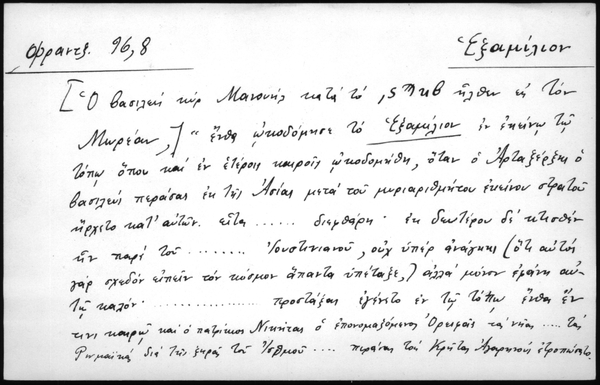 Φραντζ. 96,8
Ἑξαμίλιον
[Ὁ βασιλεύς κύρ Μανουήλ κατά τό ,ςϠκβ ἦλθεν εἰς τόν
Μωρέαν,] "ἔνθα ᾠκοδόμησε τό Ἑξαμίλιον ἐν ἐκείνῳ τῷ
τόπῳ ὅπου καί ἐν ἑτέροις καιροῖς ᾠκοδομήθη, ὅταν ὁ Ἀρταξέρξης ὁ
βασιλεύς περάσας ἐκ τῆς Ἀσίας μετά τοῦ μυριαριθμήτου ἐκείνου στρατοῦ
ἤρχετο κατ' αὐτῶν. εἶτα ...... διεφθάρη. ἐκ δευτέρου δέ κτισθέν
ἦν παρά τοῦ ........ Ἰουστινιανοῦ, οὐχ ὑπέρ ἀνάγκης (ὅτι αὐτός
γάρ σχεδόν εἰπεῖν τόν κόσμον ἅπαντα ὑπέταξε,) ἀλλά μόνον ἐφάνη αὐ-
τῷ καλόν. ................. προστάξας ἐγένετο ἐν τῷ τόπῳ ἔνθα ἔν
τινι καιρῷ καί ὁ πατρίκιος Νικήτας ὁ ἐπονομαζόμενος Ὀρυφᾶς τάς νῆας .... τάς
Ῥωμαϊκάς διά τῆς ξηρᾶς τοῦ Ἰσθμοῦ .... περάσας τούς Κρῆτας Ἀγαρηνούς ἐτροπώσατο.